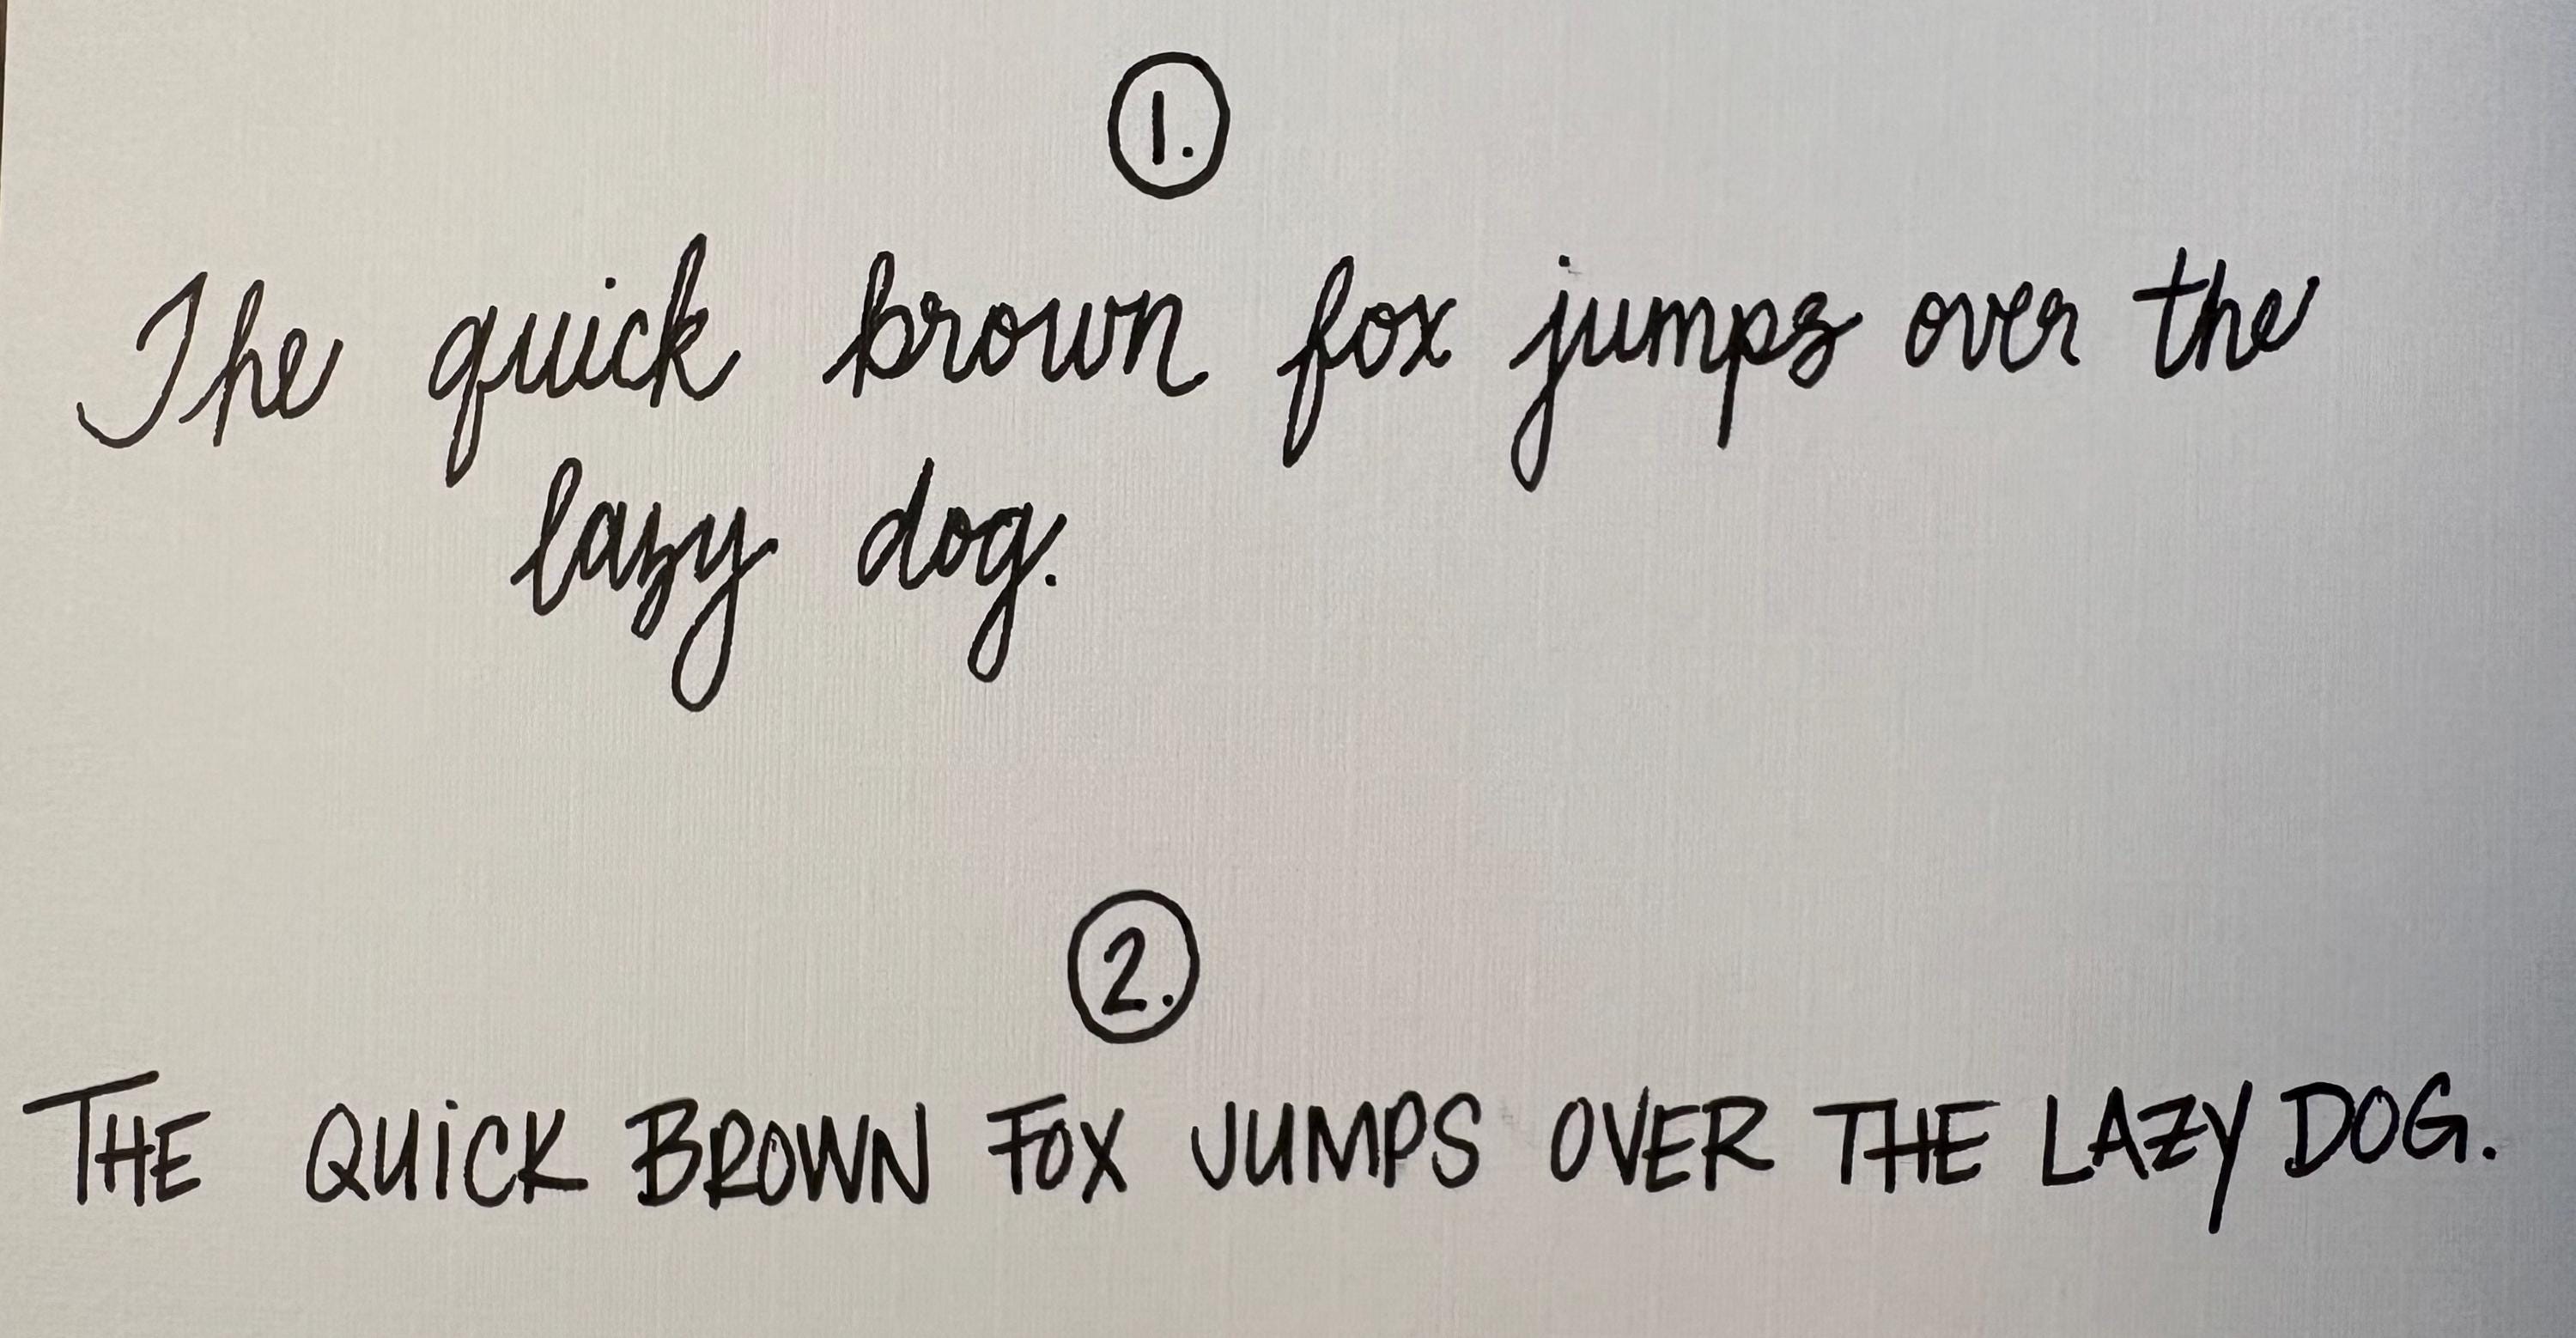 1.
The quick brown fox jumps over the
lazy dog.
2.
THE QUiCK BROWN FOX JUMPS OVER THE LAZY DOG.